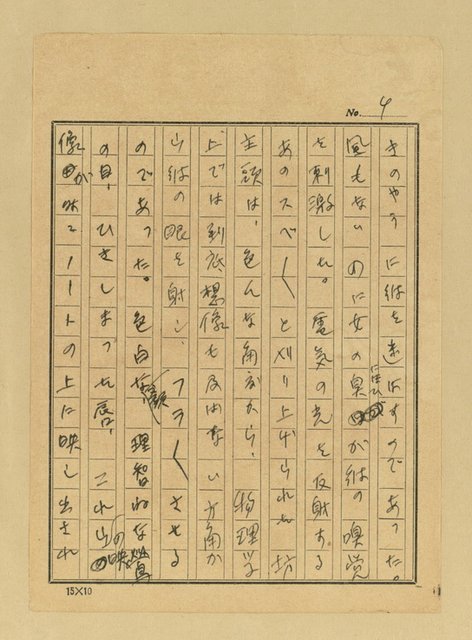 No. 4
のやうに彼を迷はすのであつた。
風もないのに女の臭にほひが彼の嗅覚
を刺激した。電気の光を反射する
あのスベ〱と刈り上げられた坊
主頭は、色んな角度から、物理学
上では到底想像も及ばない方角か
ら彼の眼を射し、フラ〱させる
のであつた。色白な顔、理智的な
の目、ひきしまつた唇、これらの映
像がノートの上に映し出され
15×10